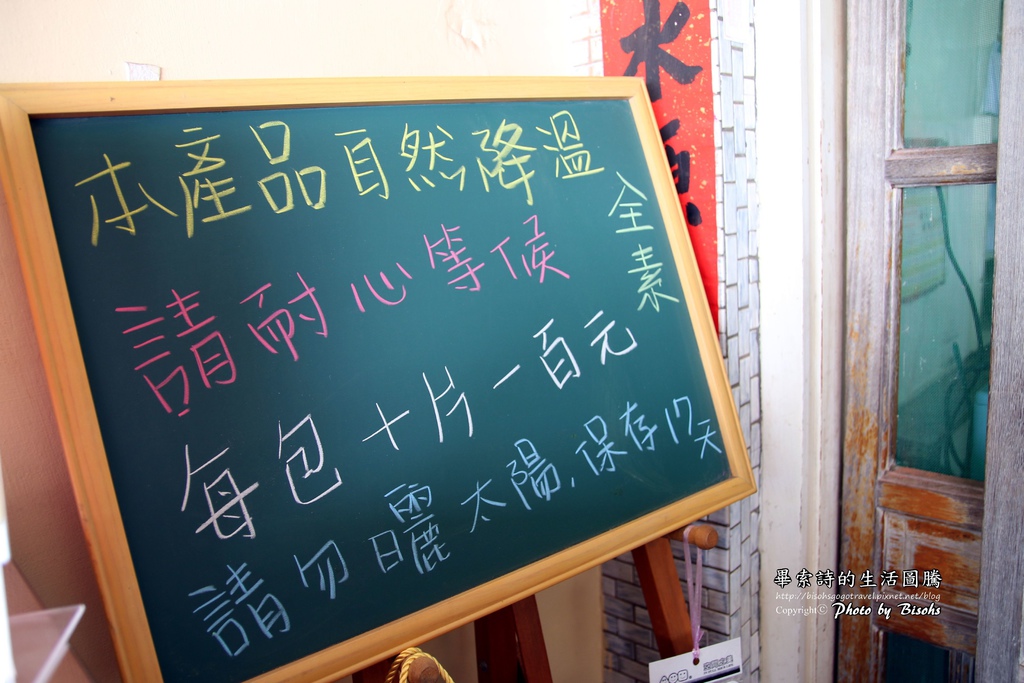 本產品自然降溫
全素
請耐心等候
每包十片一百元
請勿日曬太陽,保存17天
畢索詩的生活圖騰
http://bisohsgogotravel.pixnet.net/blog
Copyright© Photo by Bisohs